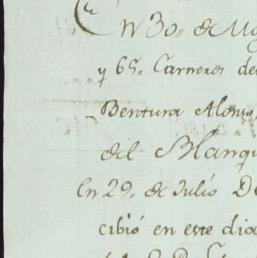 En 30. de Ma
y 65. Carneros de
Bentura Alonso
del Blanqu
En 29. de Julio De
cibió en este dia